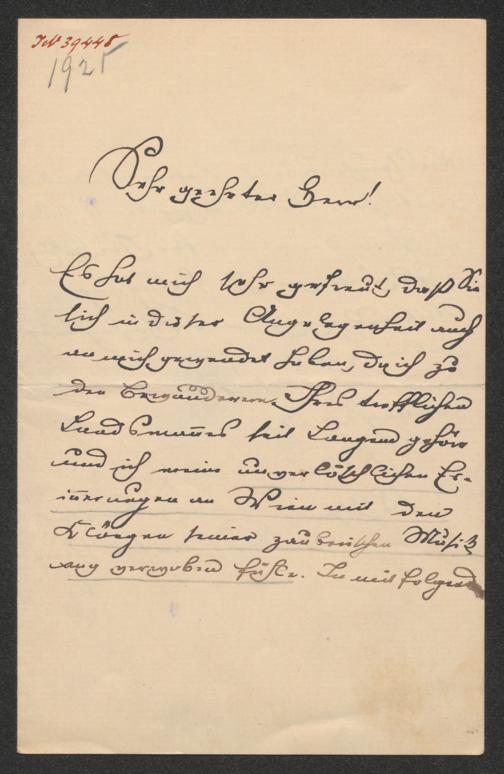 IN 39448
1925
Sehr geehrter Herr!
Es hat mich sehr gefreut, daß Sie
sich in dieser Angelegenheit auch
an mich gewendet haben, da ich zu
den Bewunderern Ihres trefflichen
Landsmannes seit Langem gehöre
und ich meine unverlöschlichen Er-
innerungen an Wien mit den
Klängen seiner zauberischen Musik
eng verwoben fühle. In mitfolgend